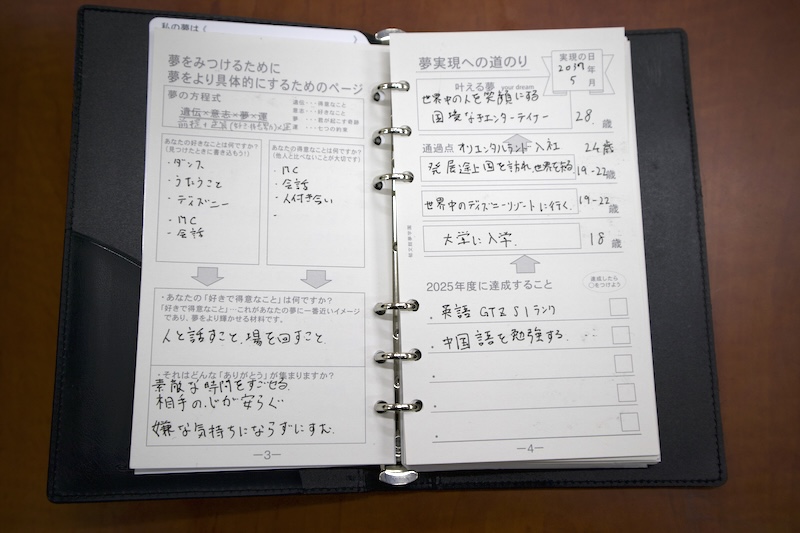 私の夢は(
夢をみつけるために
夢をより具体的にするためのページ
夢の方程式
遺伝×意志×夢×運
遺伝・・・得意なこと
意志・・・好きなこと
夢・・・君が起こす奇跡
運・・・七つの約束
あなたの好きなことは何ですか?
(見つけたときに書き込もう!)
・ダンス
・うたうこと
・ディズニー
・MC
・会話
あなたの得意なことは何ですか?
(他人と比べないことが大切です)
・MC
・会話
・人付き合い
・
・あなたの「好きで得意なこと」は何ですか?
「好きで得意なこと」…これがあなたの夢に一番近いイメージ
であり、夢をより輝かせる材料です。
人と話すこと、場を回すこと
・それはどんな「ありがとう」が集まりますか?
素敵な時間をすごせる
相手の心が安らぐ
嫌な気持ちにならずにすむ
—3—
夢実現への道のり
実現の日
2037年
5月
叶える夢 your dream
世界中の人を笑顔にする
国境なきエンターテイナー
28歳
通過点 オリエンタルランド入社 24歳
発展途上国を訪れ、世界を知る 19-22歳
世界中のディズニーリゾートに行く 19-22歳
大学に入学 18歳
2025年度に達成すること
達成したら
○をつけよう
・英語 GTZ S1ランク
・中国語を勉強する
・
・
・
—4—